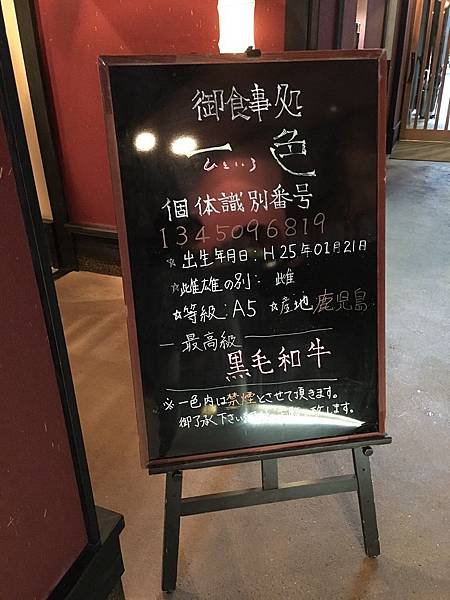 御食事処
一色
ひといろ
個体識別番号
1345096819
☆出生年月日:H25年01月21日
☆雌雄の別: 雌
☆等級:A5 ☆産地鹿児島
ー最高級
黒毛和牛
※一色内は禁煙とさせて頂きます。
御了承下さい 致します。